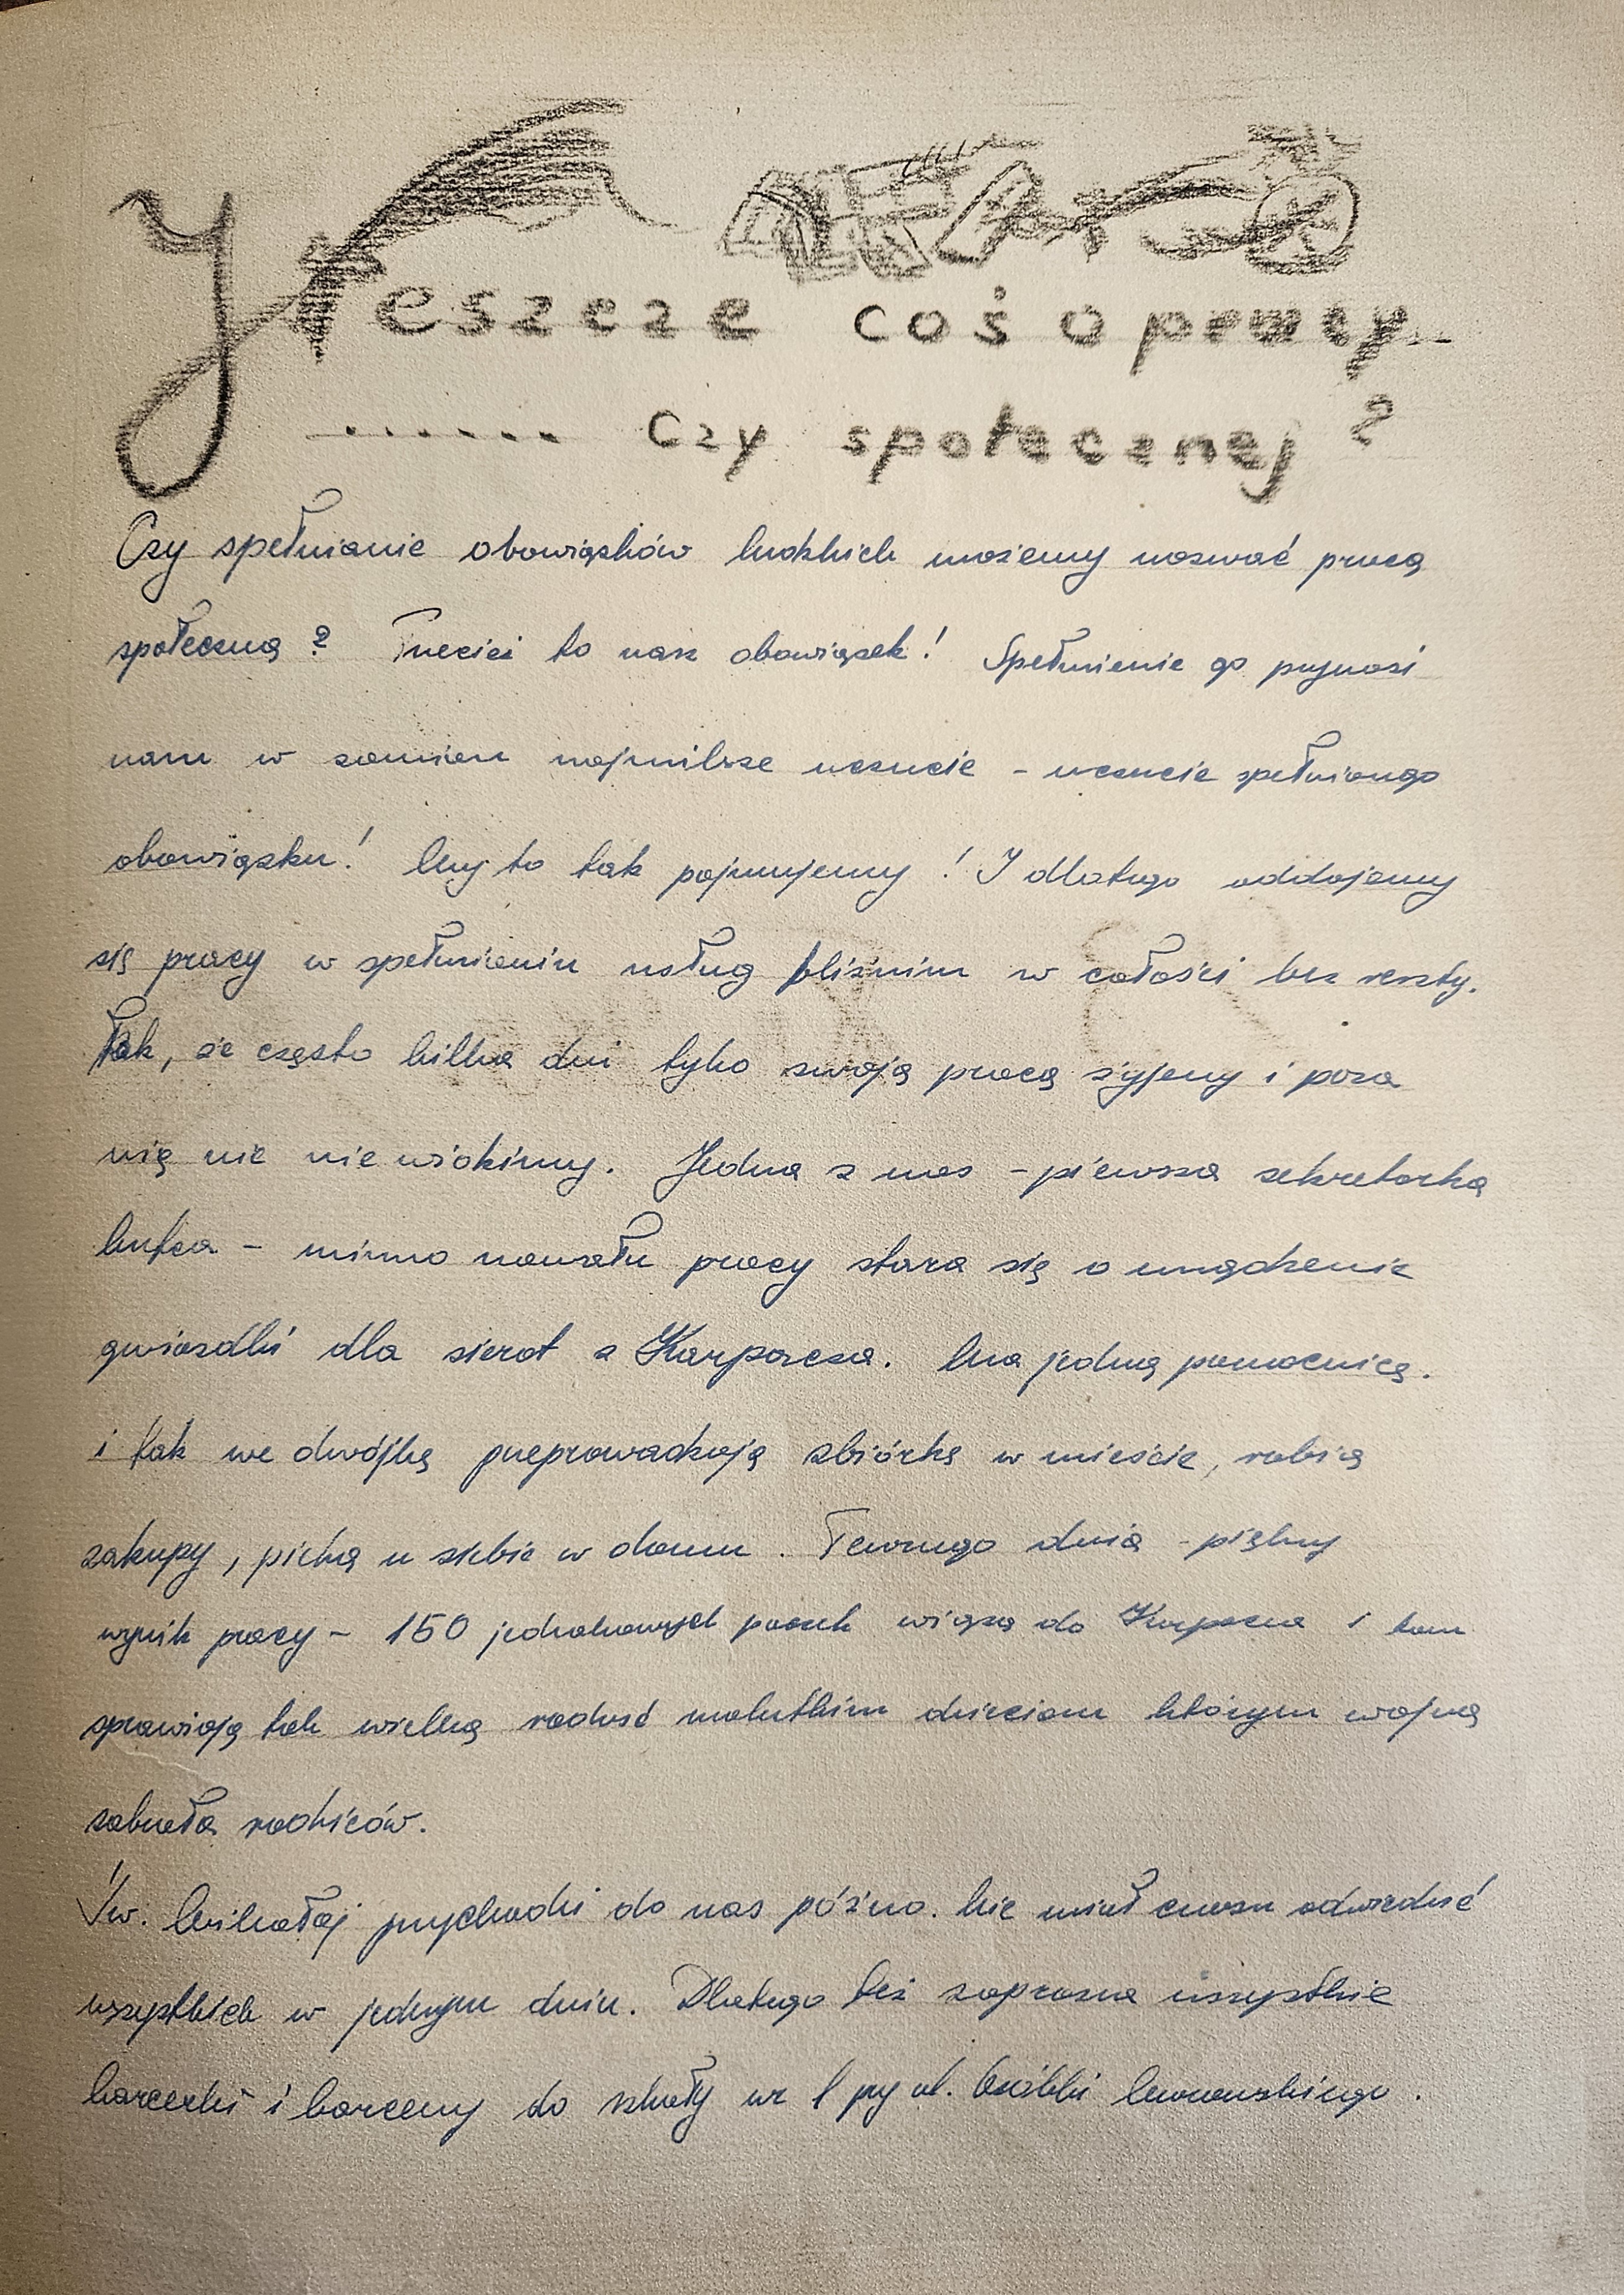 Jeszcze coś o pracy...
....... Czy społecznej?
Czy spełnianie obowiązków ludzkich możemy nazwać pracą
społeczną? Przecież to nasz obowiązek! Spełnienie go przynosi
nam w zamian najmilsze uczucie - uczucie spełnionego
obowiązku! My to tak pojmujemy! I dlatego oddajemy
się pracy w spełnianiu usług bliźnim w całości bez reszty.
Tak, że często kilka dni tylko swoją pracą żyjemy i poza
nią nic nie widzimy. Jedna z nas - pierwsza sekretarka
hufca - mimo nawału pracy stara się o urządzenie
gwiazdki dla sierot z Karpacza. Ma jedną pomocnicę.
i tak we dwójkę przeprowadzają zbiórkę w mieście, robią
zakupy, pieką u siebie w domu. Pewnego dnia - piękny
wynik pracy - 150 jednakowych paczek wiozą do Karpacza i tam
sprawiają tak wielką radość malutkim dzieciom którym wojna
zabrała rodziców.
Św. Mikołaj przychodzi do nas późno. Nie miał czasu odwiedzić
wszystkich w jednym dniu. Dlatego też zaprasza wszystkie
harcerki i harcerzy do szkoły nr 1 przy ul.